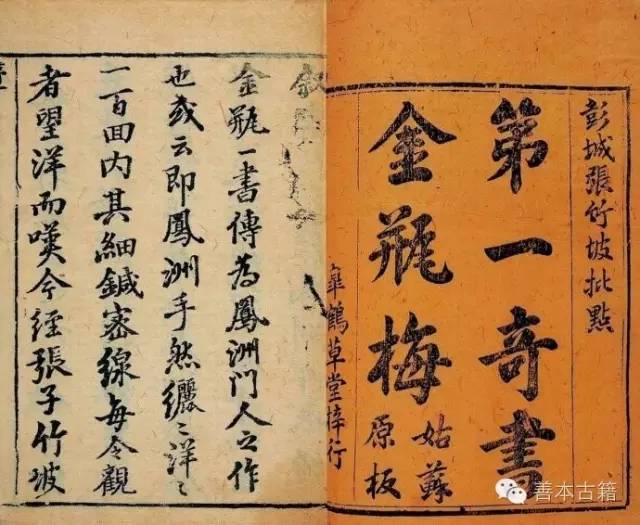 彭城張竹坡批點
第一奇書
金瓶梅
姑蘇原板
皐鶴草堂梓行
金瓶一書傳為鳳洲門人之作
也或云即鳳洲手然纚〻洋〻
一百回內其細鍼密線每令觀
者望洋而嘆今經張子竹坡
善本古籍